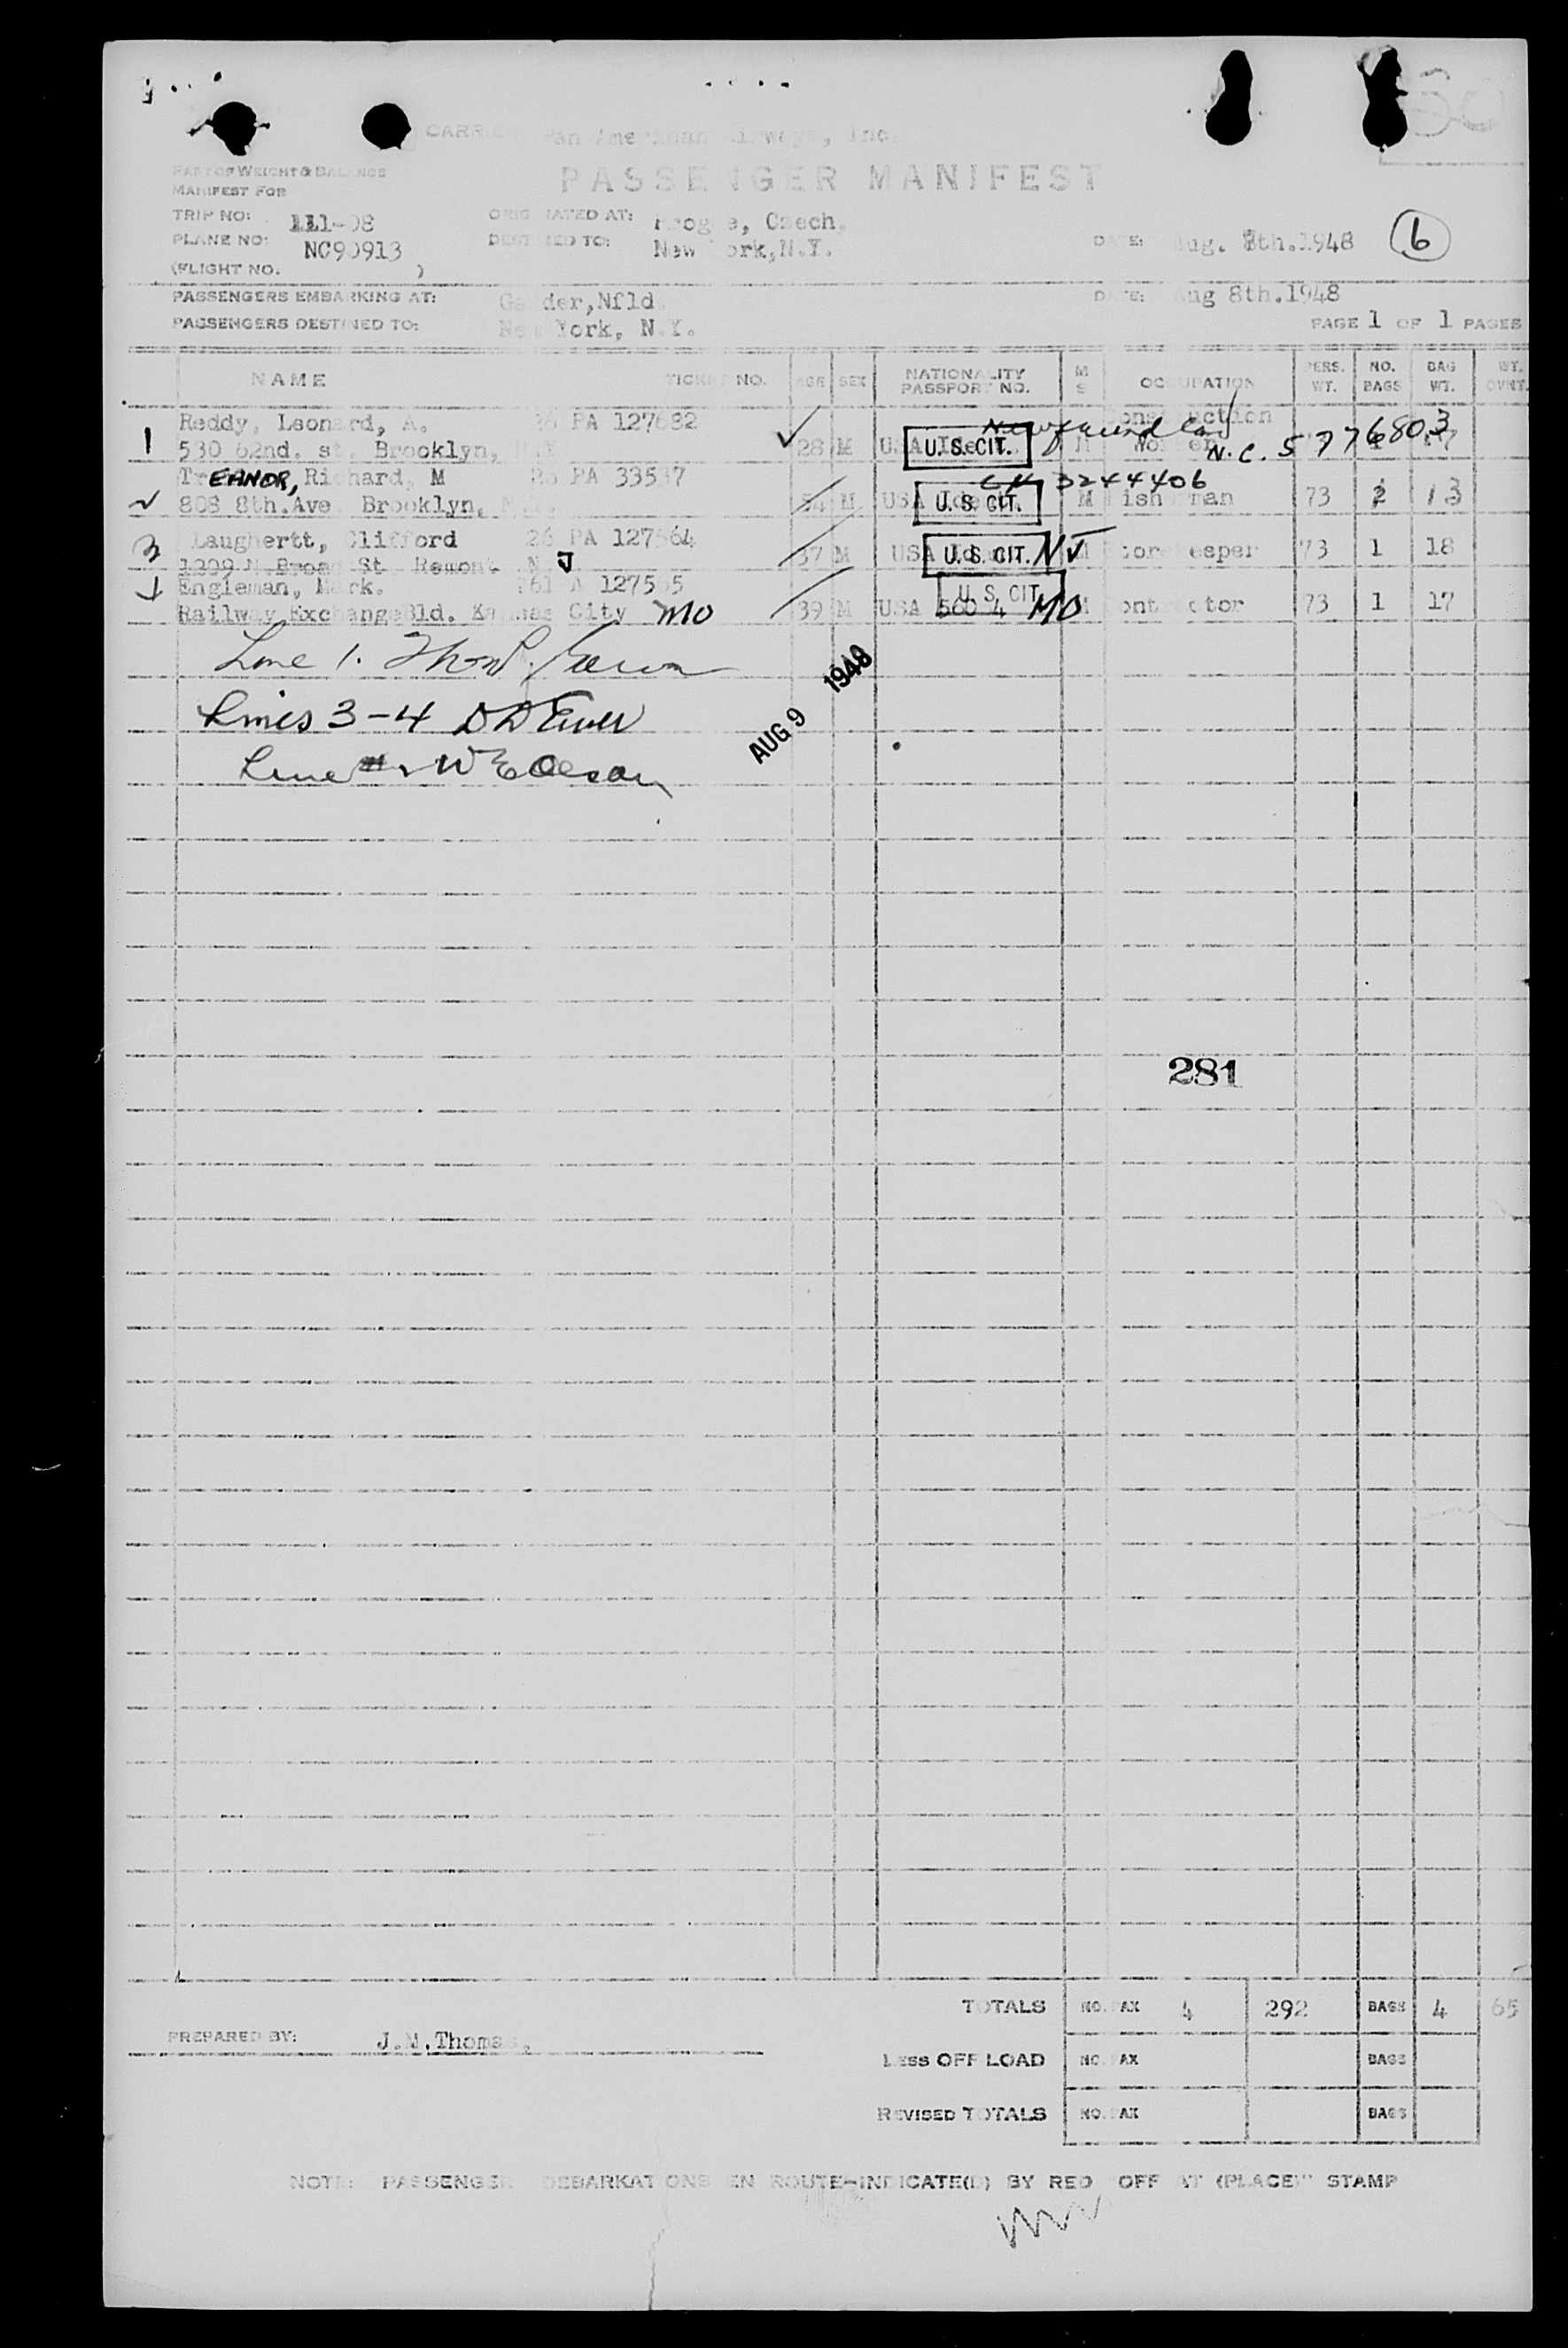 30
CARRIER Pan American Airways, Inc.
PART OF WEIGHT & BALANCE
MANIFEST FOR
PASSENGER MANIFEST
TRIP NO: 111-08 ORIGINATED AT: Progue, Czech,
PLANE NO: NC90913 DESTINED TO: New York, N.Y. DATE: Aug. 8th.1948 6
(FLIGHT NO. )
PASSENGERS EMBARKING AT: Gander, Nfld DATE: Aug 8th.1948
PASSENGERS DESTINED TO: New York, N.Y.
PAGE 1 OF 1 PAGES
NAME TICKET NO. AGE SEX NATIONALITY PASSPORT NO. M S OCCUPATION PERS. WT. NO. BAGS BAG WT. WT. OVNT.
Reddy, Leonard, A. 26 PA 127682 Construction Newfoundland
1 530 62nd. st. Brooklyn, N.Y 28 M USA U.S. CIT. M Worker N.C. 5776803
TrEANOR, Richard, M 26 PA 33537 3244406
808 8th.Ave Brooklyn, 54 M USA U.S. CIT. M Fisherman 73 2 13
3 Laughertt, Clifford 26 PA 127564 37 M USA U.S. CIT. NJ M Storekeeper 73 1 18
1299 N. Broad St N J
Engleman, Mack. 127535 U.S. CIT.
Railway Exchange Bld. Kansas City MO 39 M USA MO M Contractor 73 1 17
Line 1.
Lines 3-4
Line
AUG 9 1948
281
TOTALS NO. PAX 4 292 BAGS 4 65
PREPARED BY: J.M.Thomas,
LESS OFF LOAD NO. PAX BAGS
REVISED TOTALS NO. PAX BAGS
NOTE: PASSENGER DEBARKATIONS EN ROUTE-INDICATE(D) BY RED "OFF AT (PLACE)" STAMP